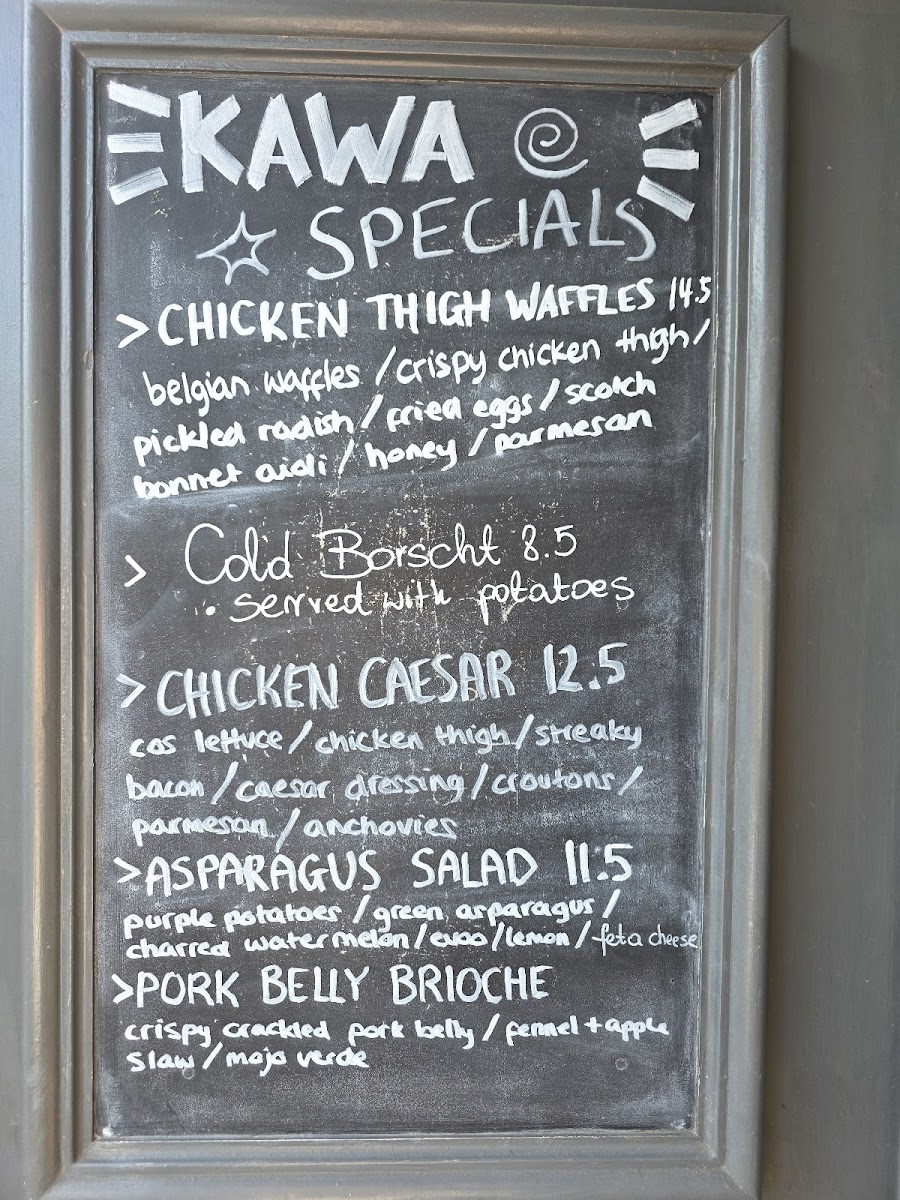 KAWA
SPECIALS
> CHICKEN THIGH WAFFLES 14.5
belgian waffles / crispy chicken thigh /
pickled radish / fried eggs / scotch
bonnet aioli / honey / parmesan
> Cold Borscht 8.5
• served with potatoes
> CHICKEN CAESAR 12.5
cos lettuce / chicken thigh / streaky
bacon / caesar dressing / croutons /
parmesan / anchovies
> ASPARAGUS SALAD 11.5
purple potatoes / green asparagus /
charred watermelon / evoo / lemon / feta cheese
> PORK BELLY BRIOCHE
crispy crackled pork belly / fennel + apple
slaw / mojo verde